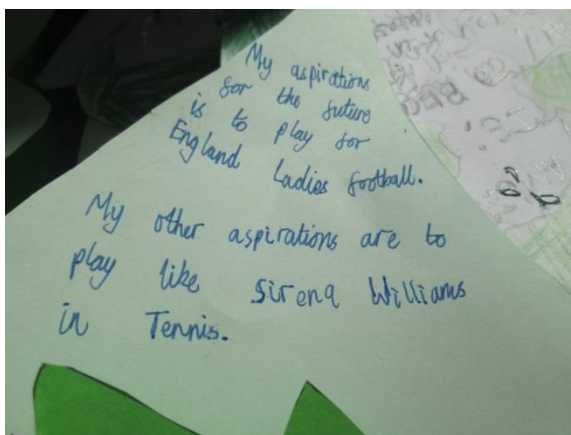 My aspirations
for the future
is to play for
England Ladies football.
My other aspirations are to
play like Sirena Williams
in Tennis.